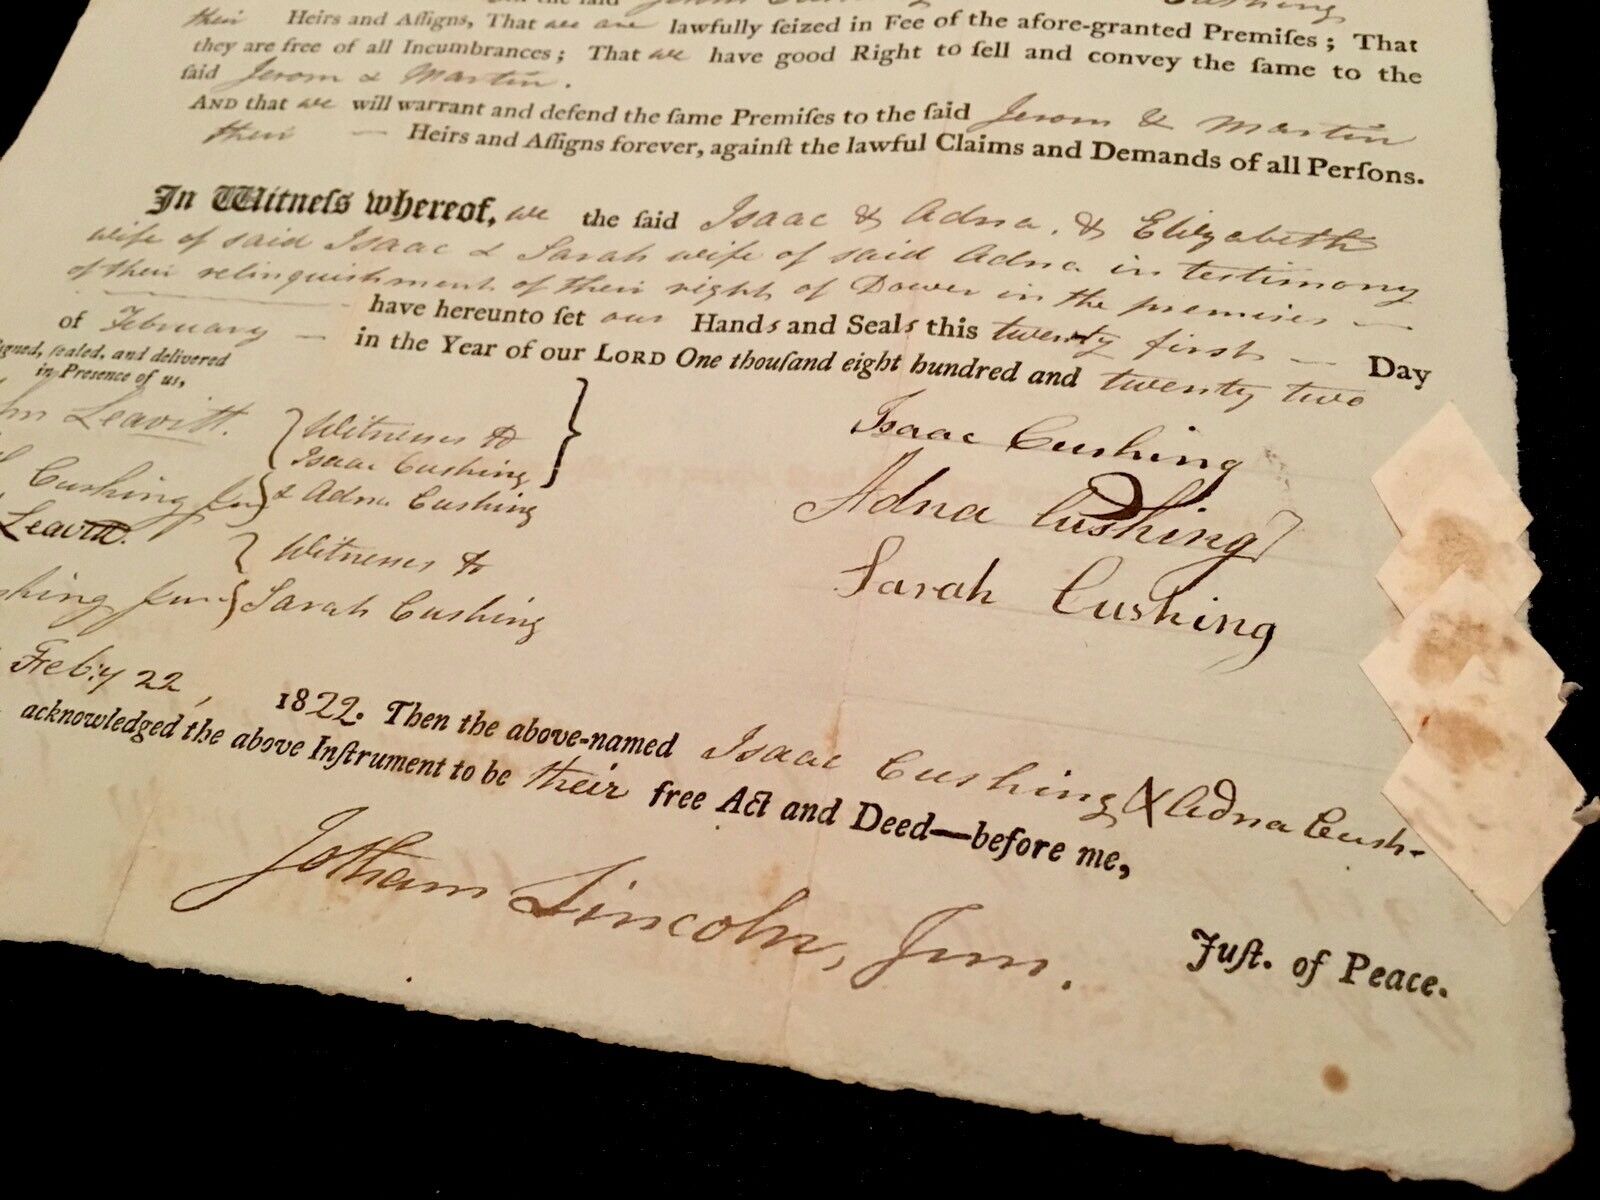 the said Jerom Cushing
their Heirs and Aſſigns, That we are lawfully ſeized in Fee of the afore-granted Premiſes; That
they are free of all Incumbrances; That we have good Right to ſell and convey the ſame to the
ſaid Jerom & Martin.
AND that we will warrant and defend the ſame Premiſes to the ſaid Jerom & Martin
their — Heirs and Aſſigns forever, againſt the lawful Claims and Demands of all Perſons.
In Witneſs whereof, we the ſaid Isaac & Adna, & Elizabeth
wife of said Isaac & Sarah wife of said Adna in testimony
of their relinquishment of their right of Dower in the premises —
have hereunto ſet our Hands and Seals this twenty first — Day
of February — in the Year of our LORD One thouſand eight hundred and twenty two
igned, ſealed, and delivered
in Presence of us,
hn Leavitt.
Cushing Jun
Leavitt.
shing Jun
Witnesses to
Isaac Cushing
& Adna Cushing
Witnesses to
Sarah Cushing
Isaac Cushing
Adna Cushing
Sarah Cushing
Feb:y 22, 1822. Then the above-named Isaac Cushing & Adna Cush-
acknowledged the above Inſtrument to be their free Act and Deed—before me,
Jotham Lincoln, Jun. Juſt. of Peace.